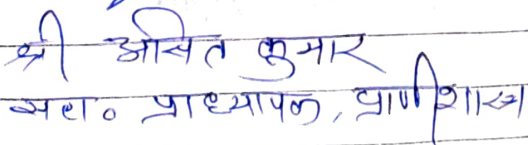 श्री असित कुमार
सहा० प्राध्यापक, प्राणीशास्त्र